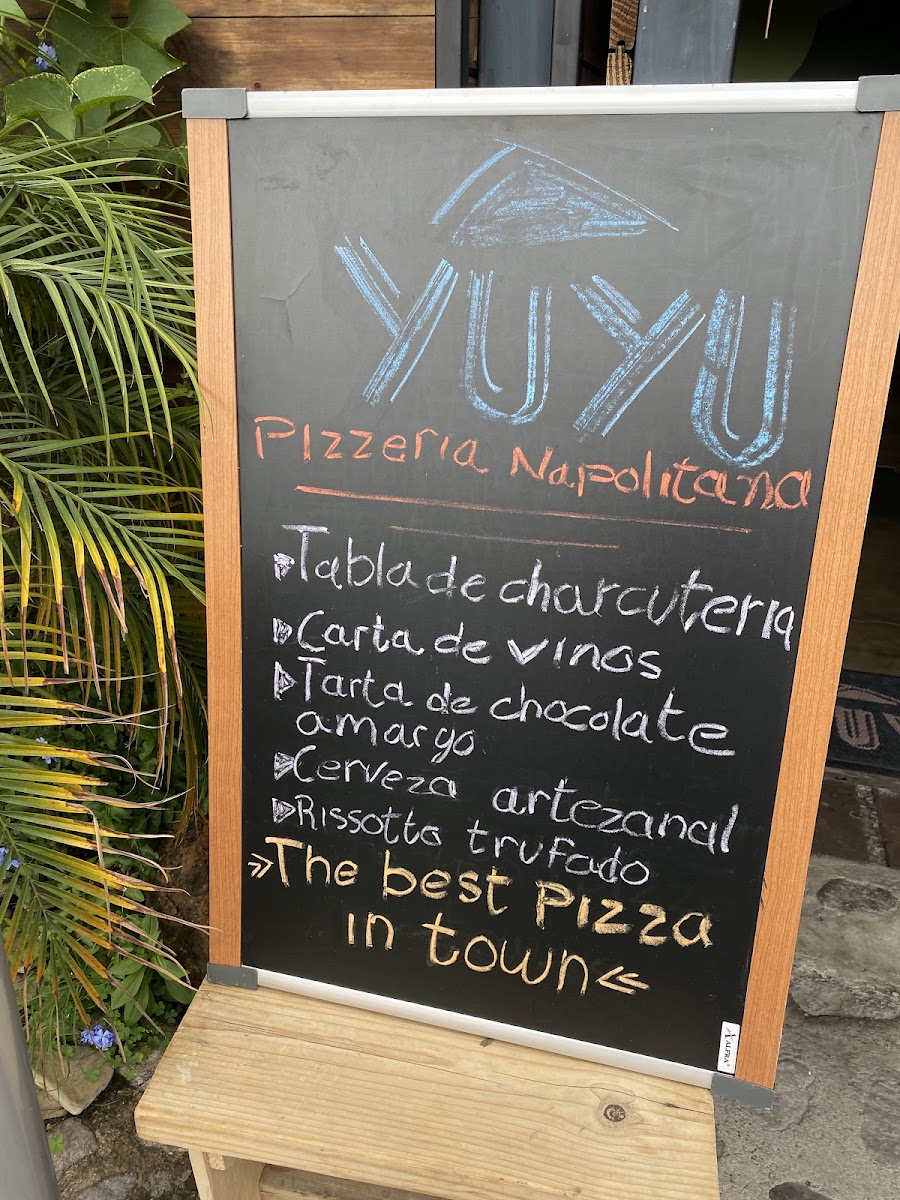 YUYU
Pizzeria Napolitana
Tabla de charcuteria
Carta de vinos
Tarta de chocolate
amargo
Cerveza artezanal
Rissotto trufado
»The best pizza
in town«
ALFRA
YUYU